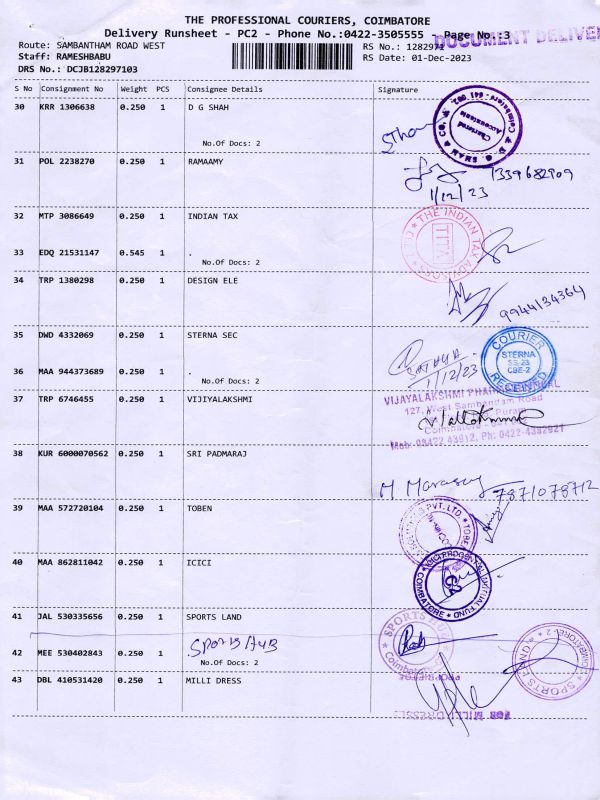 THE PROFESSIONAL COURIERS, COIMBATORE
Delivery Runsheet - PC2 - Phone No.:0422-3505555 - Page No.:3
DOCUMENT DELIVER
Route: SAMBANTHAM ROAD WEST
RS No.: 1282971
Staff: RAMESHBABU
RS Date: 01-Dec-2023
DRS No.: DCJB128297103
S No Consignment No Weight PCS Consignee Details Signature
30 KRR 1306638 0.250 1 D G SHAH
No.Of Docs: 2
Chartered Accountants
31 POL 2238270 0.250 1 RAMAAMY
1339682909
1/12/23
32 MTP 3086649 0.250 1 INDIAN TAX
THE INDIAN TAX
TITA
33 EDQ 21531147 0.545 1 .
No.Of Docs: 2
34 TRP 1380298 0.250 1 DESIGN ELE
9944134364
35 DWD 4332069 0.250 1 STERNA SEC
SATHYA
1/12/23
COURIER
STERNA
SS 23
CBE-2
RECEIVED
36 MAA 944373689 0.250 1 .
No.Of Docs: 2
37 TRP 6746455 0.250 1 VIJIYALAKSHMI
VIJAYALAKSHMI
127, West Sambandam Road
Coimbatore
Ph: 0422-4382921
38 KUR 6000070562 0.250 1 SRI PADMARAJ
7871078712
39 MAA 572720104 0.250 1 TOBEN
PVT. LTD
40 MAA 862811042 0.250 1 ICICI
ICICI PRUDENTIAL MUTUAL FUND
COIMBATORE
41 JAL 530335656 0.250 1 SPORTS LAND
SPORTS
Coimbatore
42 MEE 530402843 0.250 1 Sports Hub
No.Of Docs: 2
SPORTS LAND
COIMBATORE
43 DBL 410531420 0.250 1 MILLI DRESS
PROPRIETOR
FOR MILLI DRESSES